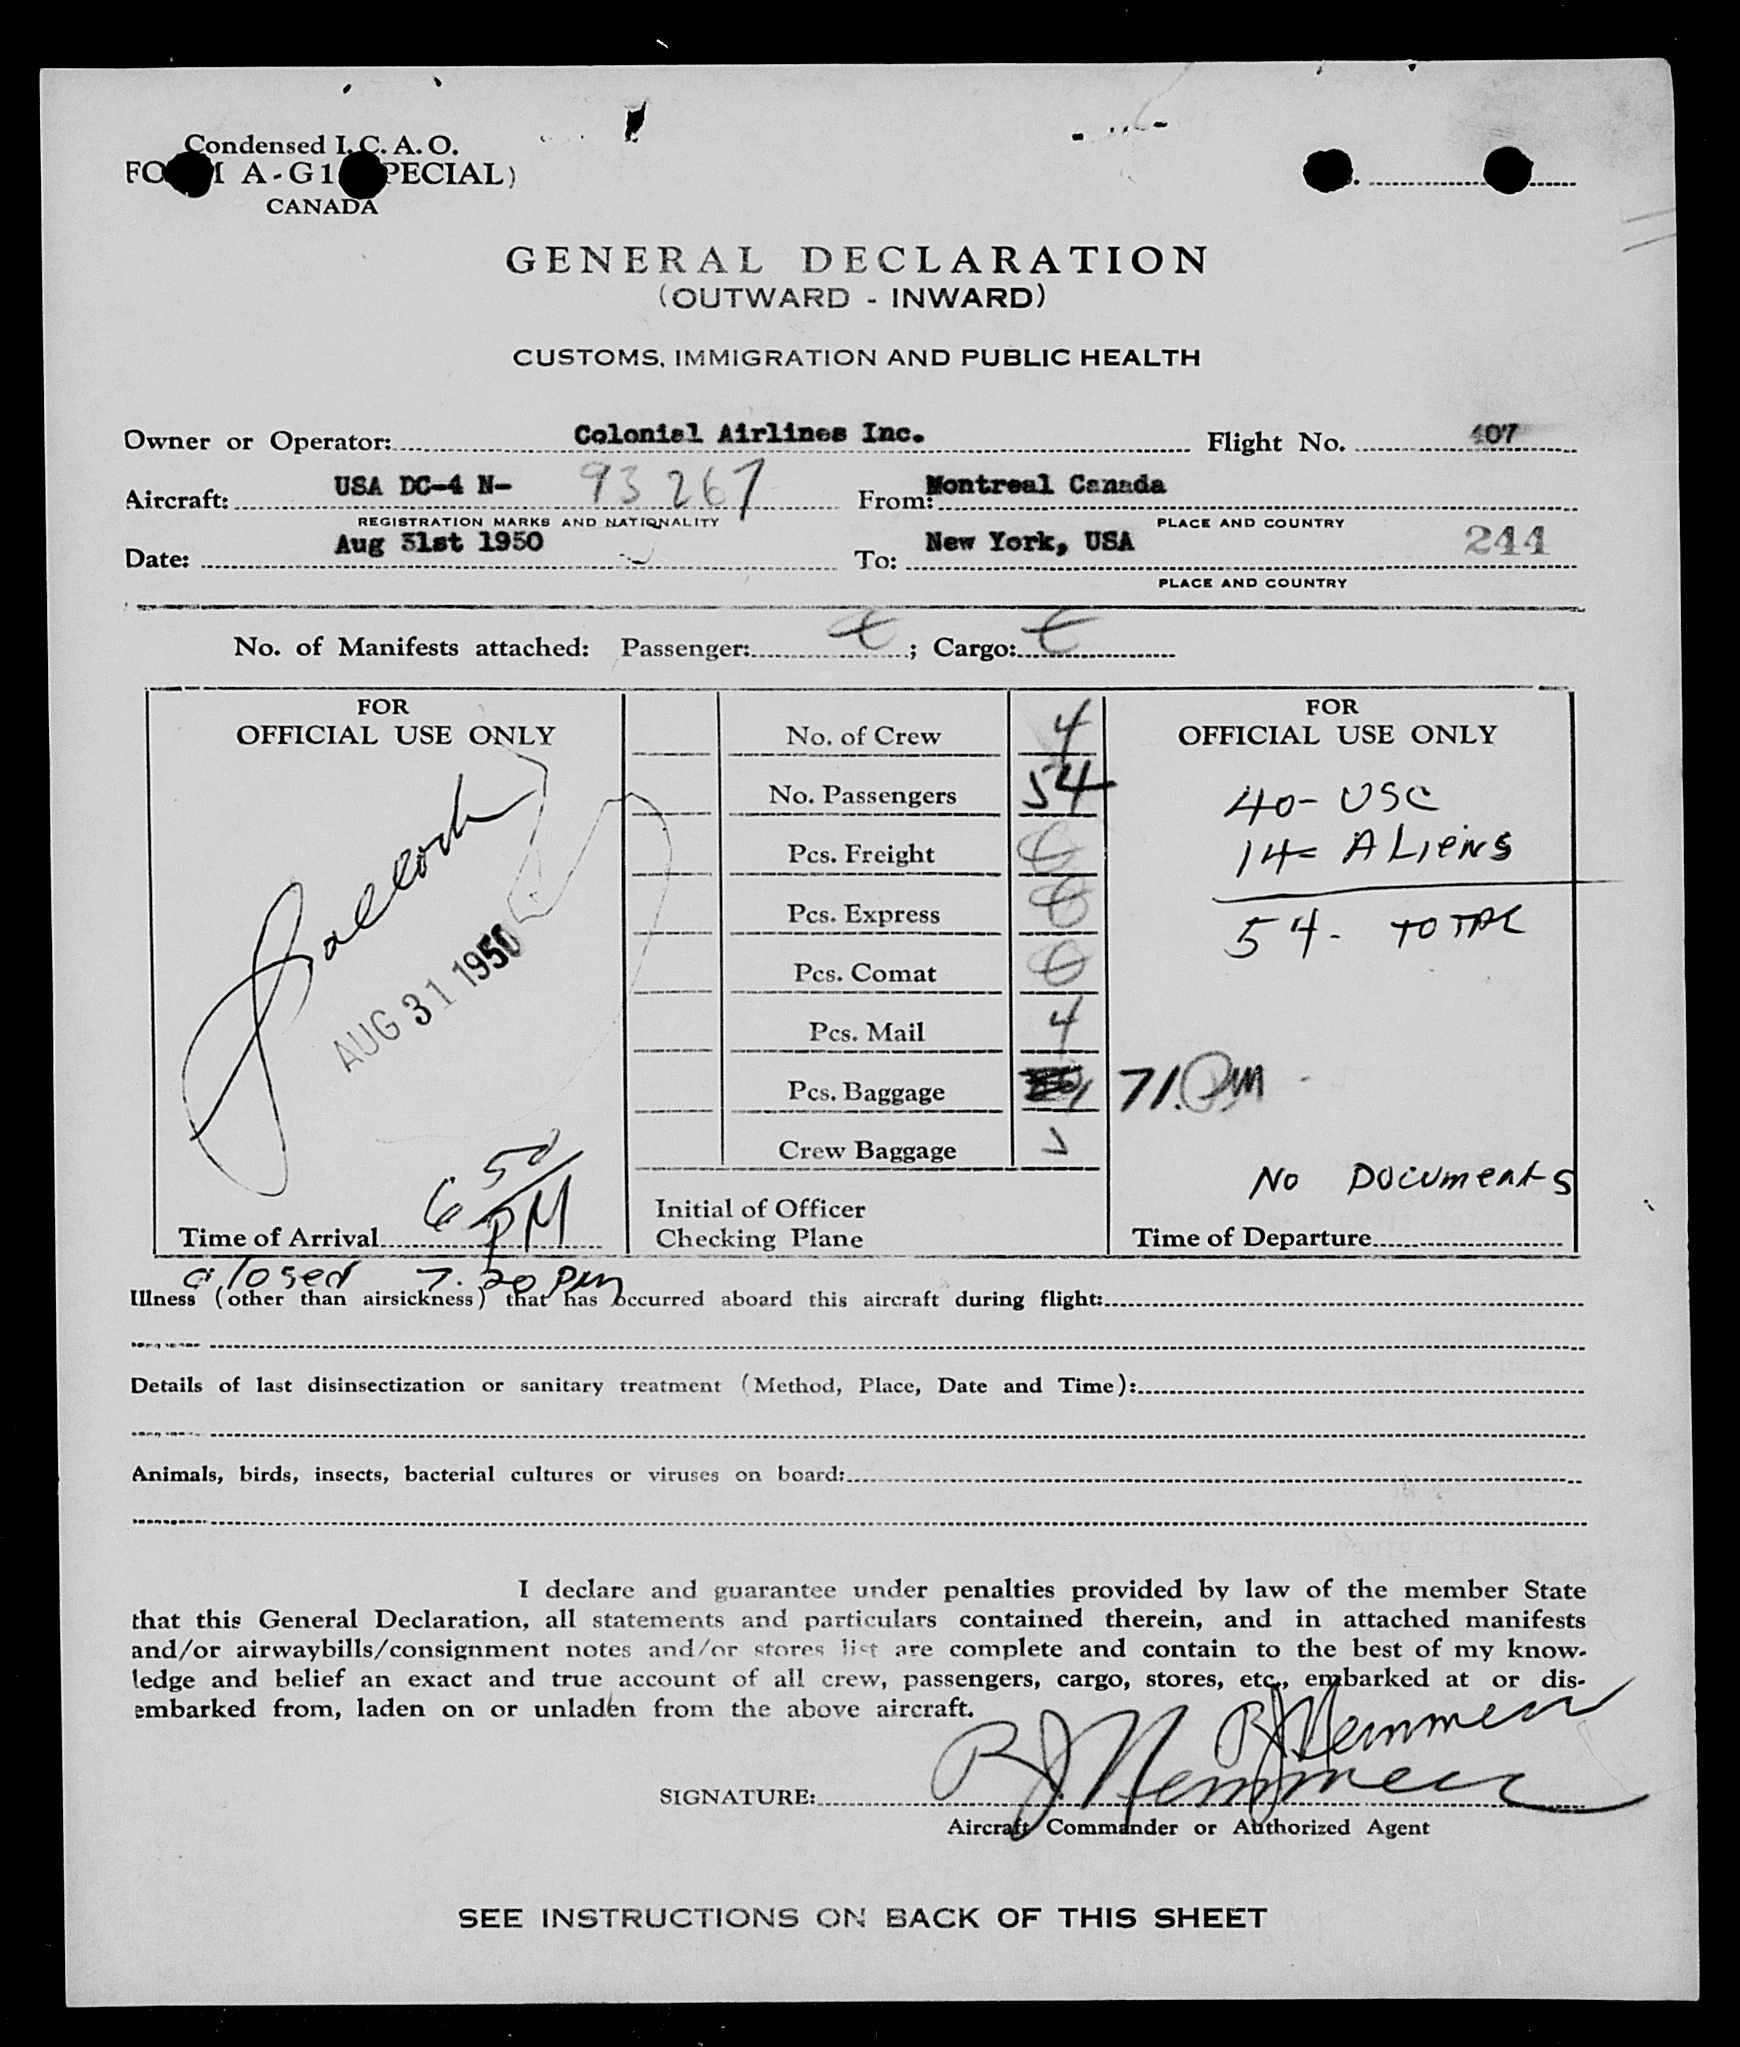 Condensed I. C. A. O.
FORM A-G1 (SPECIAL)
CANADA
GENERAL DECLARATION
(OUTWARD - INWARD)
CUSTOMS, IMMIGRATION AND PUBLIC HEALTH
Owner or Operator: Colonial Airlines Inc. Flight No. 407
Aircraft: USA DC-4 N- 93267 From: Montreal Canada
REGISTRATION MARKS AND NATIONALITY PLACE AND COUNTRY
Date: Aug 31st 1950 To: New York, USA 244
PLACE AND COUNTRY
No. of Manifests attached: Passenger: ; Cargo:
FOR
OFFICIAL USE ONLY
AUG 31 1950
Time of Arrival 6 50/PM
closed 7.20 PM
No. of Crew 4
No. Passengers 54
Pcs. Freight
Pcs. Express
Pcs. Comat
Pcs. Mail 4
Pcs. Baggage 71. PM
Crew Baggage
Initial of Officer
Checking Plane
FOR
OFFICIAL USE ONLY
40- USC
14- ALiens
54- TOTAL
No Documents
Time of Departure
Illness (other than airsickness) that has occurred aboard this aircraft during flight:
Details of last disinsectization or sanitary treatment (Method, Place, Date and Time):
Animals, birds, insects, bacterial cultures or viruses on board:
I declare and guarantee under penalties provided by law of the member State
that this General Declaration, all statements and particulars contained therein, and in attached manifests
and/or airwaybills/consignment notes and/or stores list are complete and contain to the best of my know-
ledge and belief an exact and true account of all crew, passengers, cargo, stores, etc., embarked at or dis-
embarked from, laden on or unladen from the above aircraft.
RJ Hemmen
SIGNATURE: RJ Hemmen
Aircraft Commander or Authorized Agent
SEE INSTRUCTIONS ON BACK OF THIS SHEET